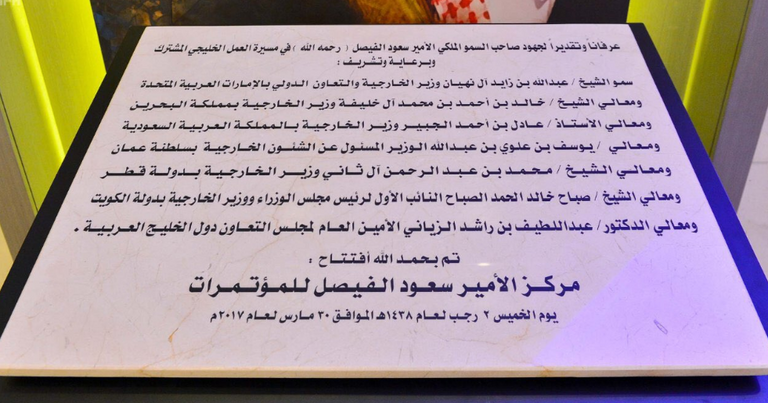 عرفاناً وتقديراً لجهود صاحب السمو الملكي الأمير سعود الفيصل ( رحمه الله ) في مسيرة العمل الخليجي المشترك
وبرعاية وتشريف :
سمو الشيخ / عبدالله بن زايد آل نهيان وزير الخارجية والتعاون الدولي بالإمارات العربية المتحدة
ومعالي الشيخ / خالد بن أحمد بن محمد آل خليفة وزير الخارجية بمملكة البحرين
ومعالي الاستاذ / عادل بن أحمد الجبير وزير الخارجية بالمملكة العربية السعودية
ومعالي / يوسف بن علوي بن عبدالله الوزير المسئول عن الشئون الخارجية بسلطنة عمان
ومعالي الشيخ / محمد بن عبد الرحمن آل ثاني وزير الخارجية بدولة قطر
ومعالي الشيخ / صباح خالد الحمد الصباح النائب الأول لرئيس مجلس الوزراء ووزير الخارجية بدولة الكويت
ومعالي الدكتور/ عبداللطيف بن راشد الزياني الأمين العام لمجلس التعاون دول الخليج العربية .
تم بحمد الله أفتتاح :
مركز الأمير سعود الفيصل للمؤتمرات
يوم الخميس ٢ رجب لعام ١٤٣٨هـ الموافق ٣٠ مارس لعام ٢٠١٧م